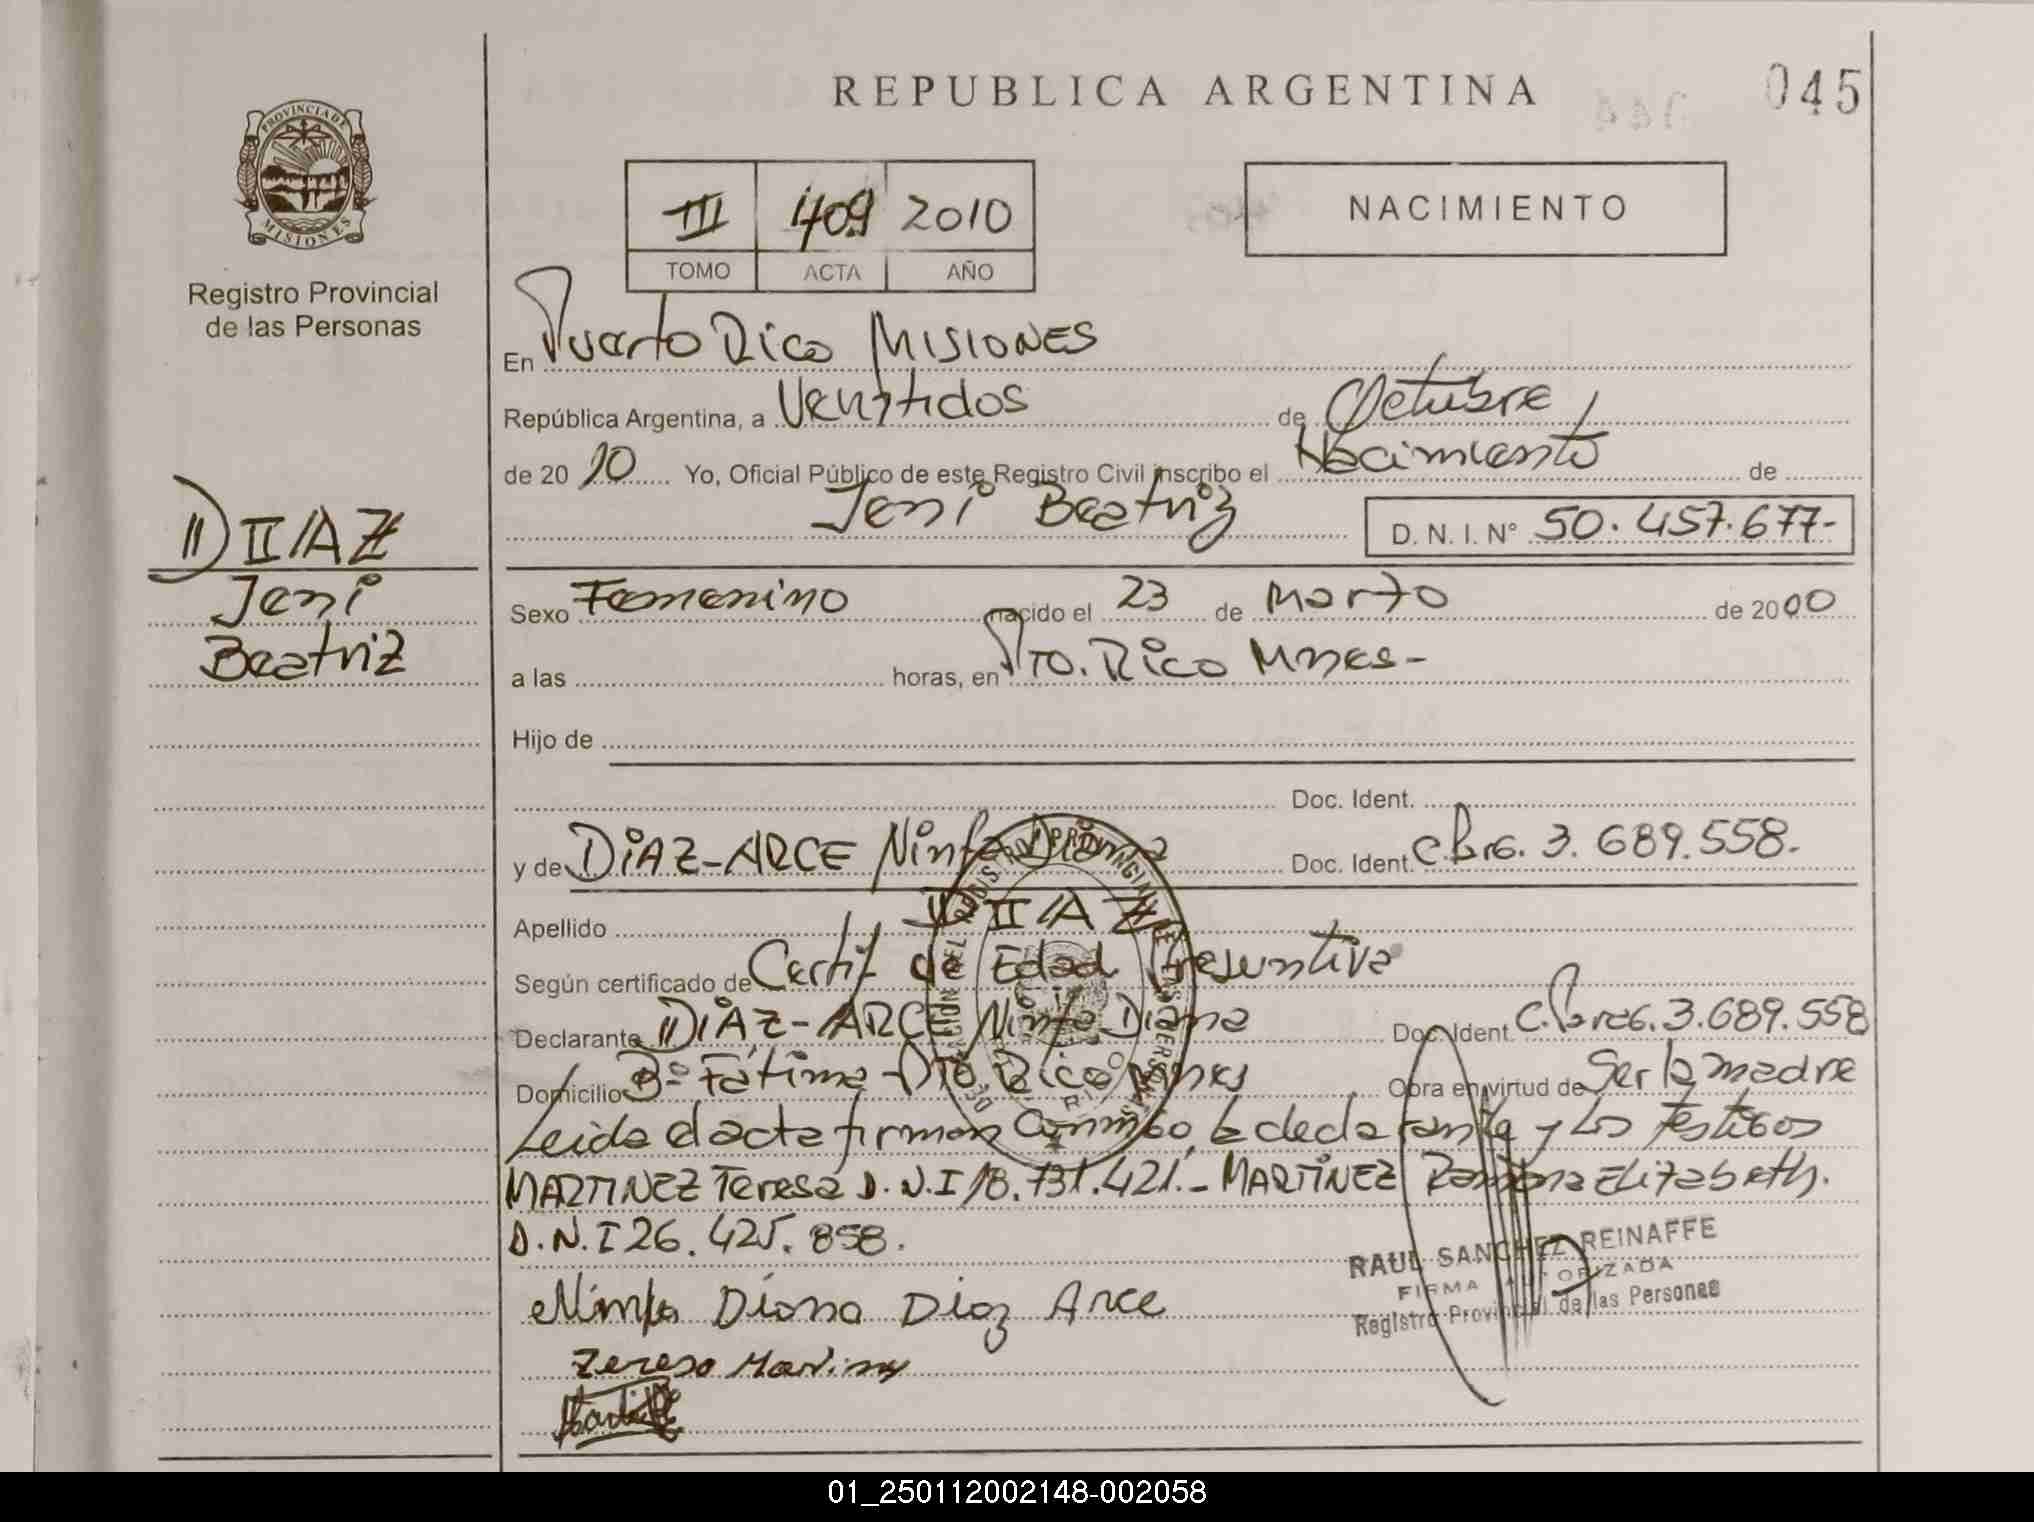 REPUBLICA ARGENTINA
045
PROVINCIA DE
MISIONES
Registro Provincial
de las Personas
III 409 2010
TOMO ACTA AÑO
NACIMIENTO
En Puerto Rico MISIONES
República Argentina, a Veintidos de Octubre
de 2010 Yo, Oficial Público de este Registro Civil inscribo el Nacimiento de
Jeni Beatriz D. N. I. N° 50.457.677-
DIAZ
Jeni
Beatriz
Sexo Femenino nacido el 23 de Marzo de 2000
a las horas, en Pto. Rico Mnes-
Hijo de
Doc. Ident.
y de DIAZ-ARCE Ninfa Diana Doc. Ident. 3.689.558.-
Apellido DIAZ
Según certificado de Certif de Edad Presuntiva
Declarante DIAZ-ARCE Ninfa Diana Doc. Ident. 3.689.558
Domicilio B° Fátima - Pto Rico Mnes Obra en virtud de Ser la madre
Leida el acta firman Conmigo, la declarante y los testigos
MARTINEZ Teresa D.N.I 18.731.421.- MARTINEZ Ramona Elizabeth.
D.N.I 26.425.858.
RAUL SANCHEZ REINAFFE
FIRMA AUTORIZADA
Registro Provincial de las Personas
Ninfa Diana Diaz Arce
Teresa
01_250112002148-002058